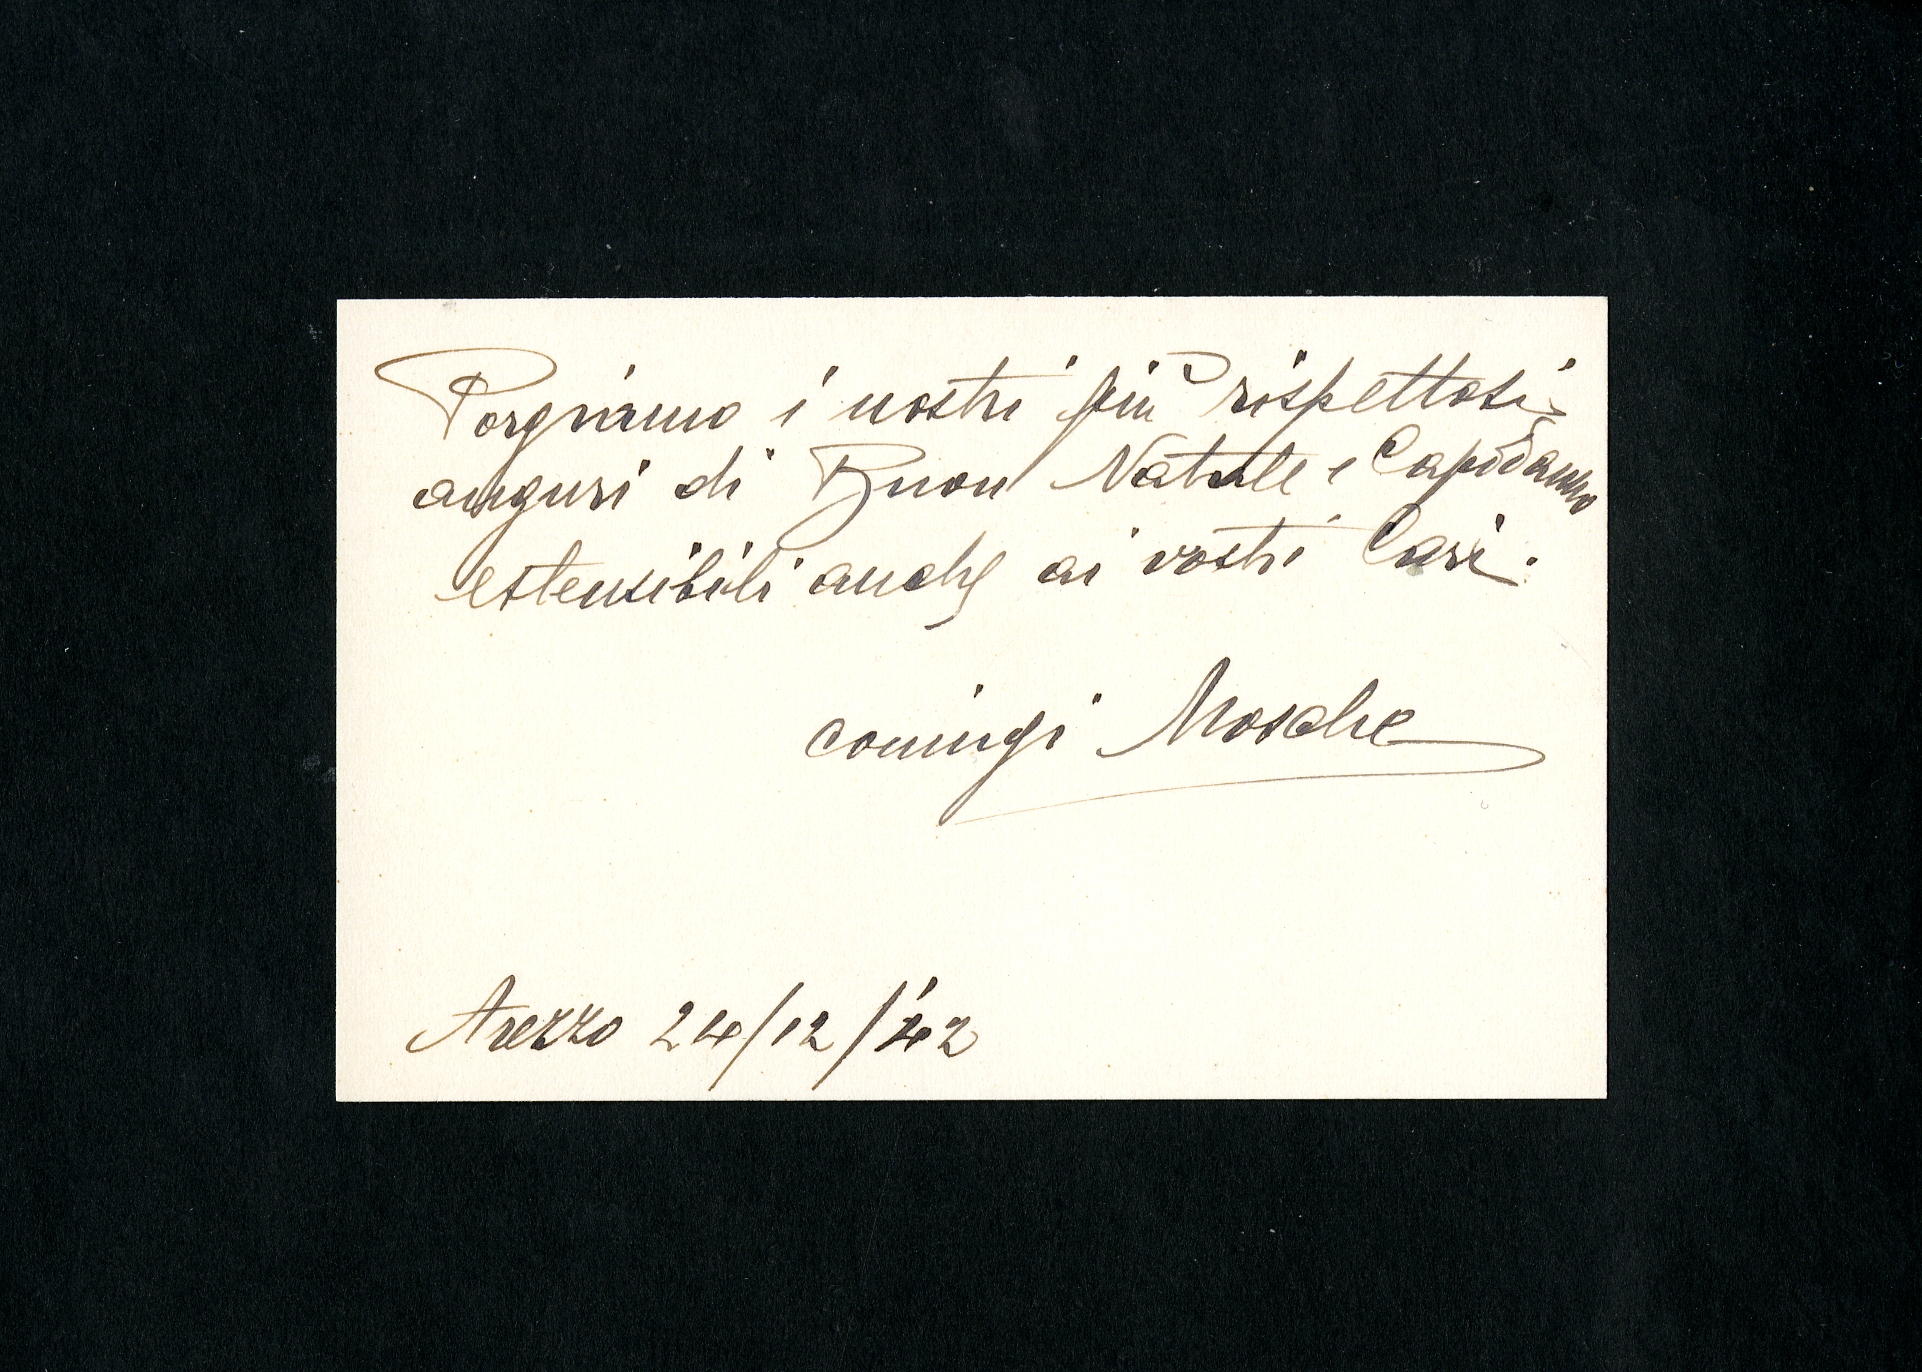 Porgiamo i nostri più rispettosi
auguri di Buon Natale e Capodanno
estensibili anche ai vostri Cari.
coniugi Mosche
Arezzo 24/12/'42